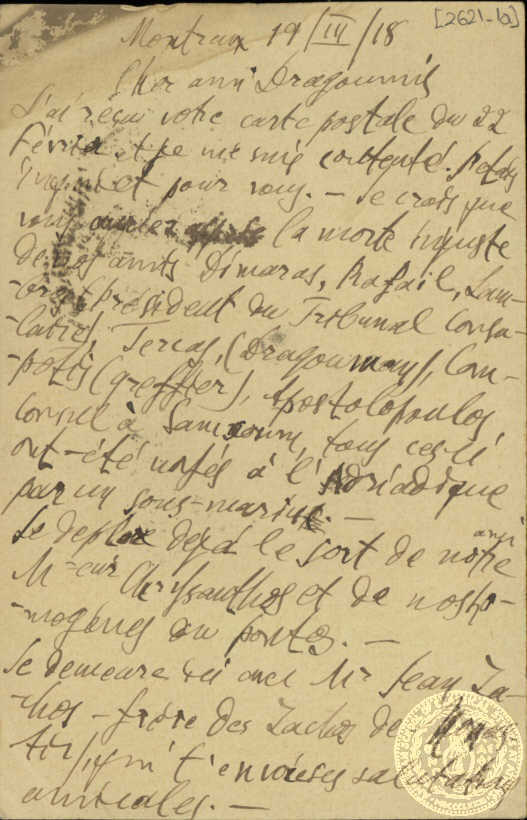 [2621-ba]
Montreux 19/III/18
Cher ami Dragoumis
J'ai reçu votre carte postale du 22
Février et je me suis contenté.
et pour vous. – Je crois que
vous la morte injuste
de nos amis Dimaras, Rafaïl, Lam-
président du Tribunal Consu-
-laire), (Dragouman), Cam-
(greffier), Apostolopoulos
consul à Samsoun, tous ces-ci
ont-été noyés à l'Adriadique
par un sous-marin. –
Je deplore déjà le sort de notre ami
M-eur Chrysanthos et de nos ho-
-mogènes du pontos. –
Je demeure ici avec Mr Jean Za-
-chos – frère des Zachos de Monas-
tir), qui t'envoie ses salutations
amicales. –